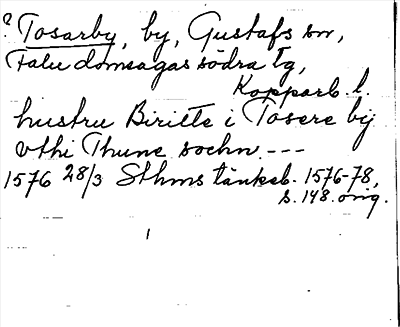 ? Tosarby, by, Gustafs sn,
Falu domsagas södra tg,
Kopparb. l.
hustru Biritte i Tosere by
vthi Thune sochn. ---
1576 28/3 Sthms tänkeb. 1576-78,
s. 148. orig.